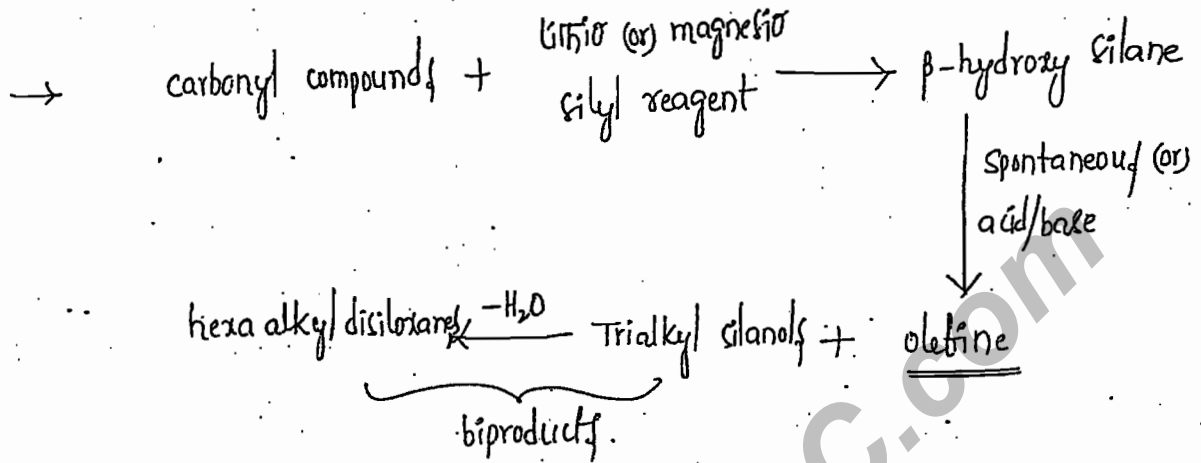 → carbonyl compounds + lithio (or) magnesio silyl reagent → β-hydroxy silane
spontaneous (or)
acid/base
hexa alkyl disiloxanes ←-H₂O Trialkyl silanols + olefine
biproducts.
C.com